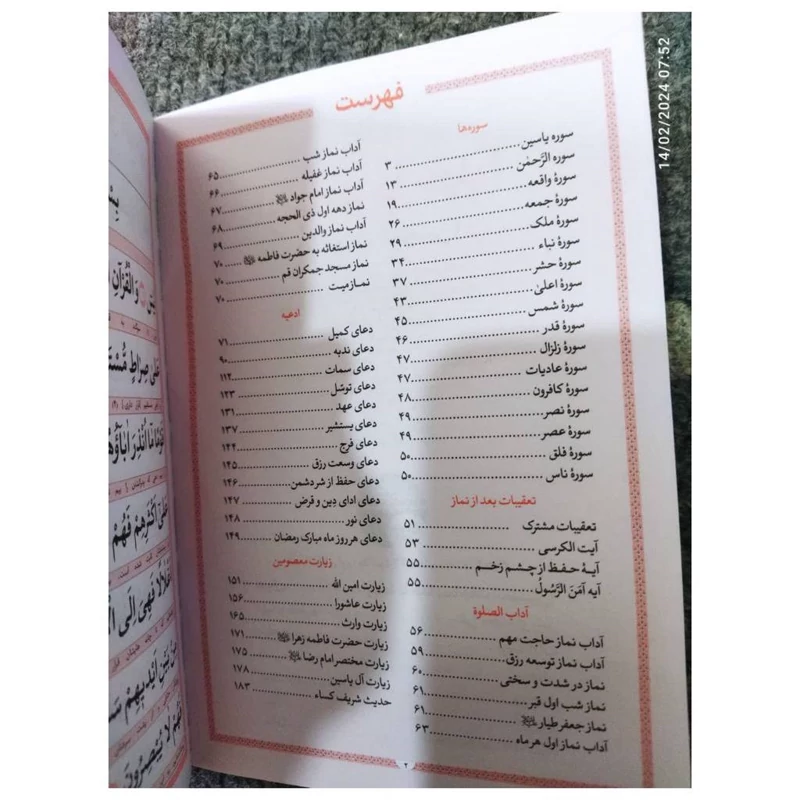 فهرست
سوره‌ها
سوره یاسین ................ ۳
سوره الرَّحمٰن ................ ۱۳
سورهٔ واقعه ................ ۱۹
سورهٔ جمعه ................ ۲۶
سورهٔ ملک ................ ۲۹
سورهٔ نباء ................ ۳۴
سورهٔ حشر ................ ۳۷
سورهٔ اعلیٰ ................ ۴۳
سورهٔ شمس ................ ۴۵
سورهٔ قدر ................ ۴۶
سورهٔ زلزال ................ ۴۷
سورهٔ عادیات ................ ۴۷
سورهٔ کافرون ................ ۴۸
سورهٔ نصر ................ ۴۹
سورهٔ عصر ................ ۴۹
سورهٔ فلق ................ ۵۰
سورهٔ ناس ................ ۵۰
تعقیبات بعد از نماز
تعقیبات مشترک ................ ۵۱
آیت الکرسی ................ ۵۳
آیهٔ حفظ از چشم زخم ................ ۵۵
آیه آمَنَ الرَّسُولُ ................ ۵۵
آداب الصلوة
آداب نماز حاجت مهم ................ ۵۶
آداب نماز توسعه رزق ................ ۵۹
نماز در شدت و سختی ................ ۶۰
نماز شب اول قبر ................ ۶۱
نماز جعفر طیار ................ ۶۱
آداب نماز اول هر ماه ................ ۶۳
آداب نماز شب ................ ۶۵
آداب نماز غفیله ................ ۶۶
آداب نماز امام جواد ................ ۶۷
نماز دهه اول ذی الحجه ................ ۶۸
آداب نماز والدین ................ ۶۹
نماز استغاثه به حضرت فاطمه ................ ۷۰
نماز مسجد جمکران قم ................ ۷۰
نماز میت ................ ۷۰
ادعیه
دعای کمیل ................ ۷۱
دعای ندبه ................ ۹۰
دعای سمات ................ ۱۱۲
دعای توسّل ................ ۱۲۳
دعای عهد ................ ۱۳۱
دعای یستشیر ................ ۱۳۷
دعای فرج ................ ۱۴۴
دعای وسعت رزق ................ ۱۴۵
دعای حفظ از شر دشمن ................ ۱۴۶
دعای ادای دِین و قرض ................ ۱۴۷
دعای نور ................ ۱۴۸
دعای هر روز ماه مبارک رمضان ................ ۱۴۹
زیارت معصومین
زیارت امین الله ................ ۱۵۱
زیارت عاشورا ................ ۱۵۶
زیارت وارث ................ ۱۶۵
زیارت حضرت فاطمه زهرا ................ ۱۷۱
زیارت مختصر امام رضا ................ ۱۷۵
زیارت آل یاسین ................ ۱۷۸
حدیث شریف کساء ................ ۱۸۳
۲
وَ الْقُرْآنِ
عَلىٰ صِرَاطٍ
اَكْثَرِهِمْ فَهُمْ
فَهِیَ اِلَی
اَیْدِیهِمْ
لا یُبْصِرُونَ
14/02/2024 07:52